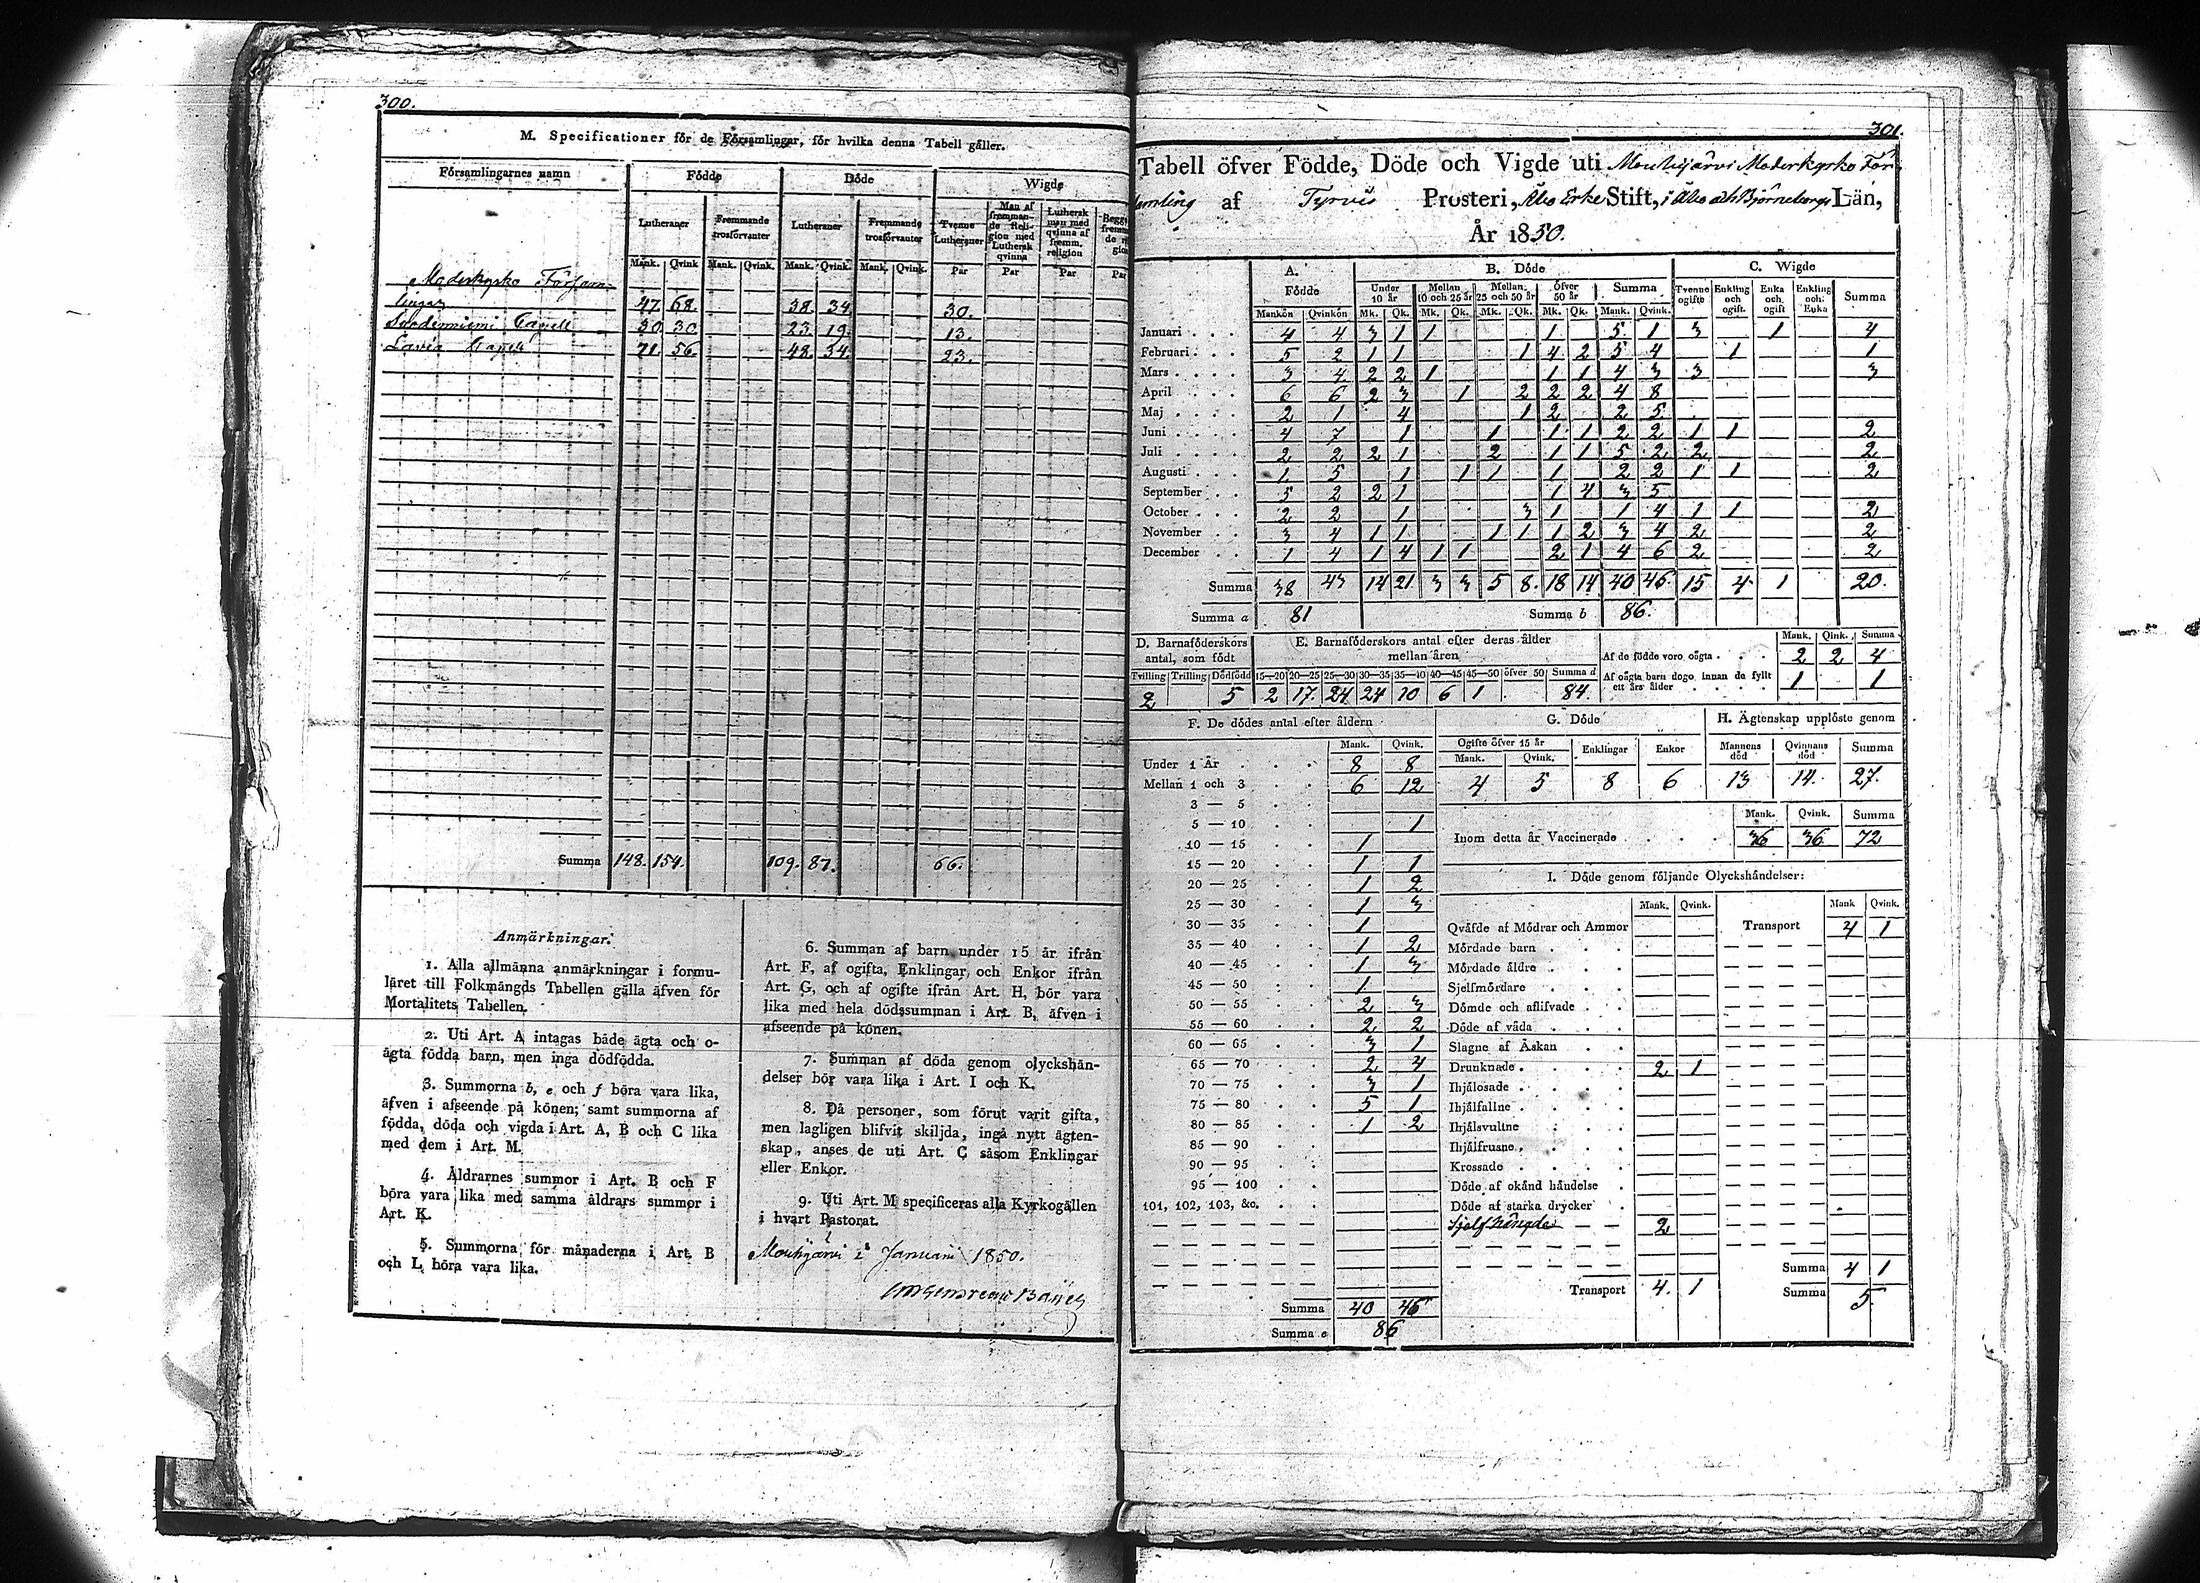 300.
M. Specificationer för de Församlingar, för hvilka denna Tabell gäller.
Församlingarnes namn Födde Döde Wigde
Lutheraner Fremmande trosförvanter Lutheraner Fremmande trosförvanter Tvenne Lutheraner Man af fremmande Religion med Luthersk qvinna Luthersk man med qvinna af fremm. religion
Mank. Qvink. Mank. Qvink. Mank. Qvink. Mank. Qvink. Par Par Par Par
Moderkyrko Försam-
lingen 47 68 38. 34. 30.
Suodenniemi Capell 30 30 23. 19. 13.
Lavia Capell 71 56 48. 34. 23.
Summa 148. 154. 109. 87. 66.
Anmärkningar.
1. Alla allmänna anmärkningar i formu-
läret till Folkmängds Tabellen gälla äfven för
Mortalitets Tabellen.
2. Uti Art. A intagas både ägta och o-
ägta födda barn, men inga dödfödda.
3. Summorna b, e och f böra vara lika,
äfven i afseende på könen; samt summorna af
födda, döda och vigda i Art. A, B och C lika
med dem i Art. M.
4. Åldrarnes summor i Art. B och F
böra vara lika med samma åldrars summor i
Art. K.
5. Summorna för månaderna i Art. B
och L böra vara lika.
6. Summan af barn under 15 år ifrån
Art. F, af ogifta, Enklingar och Enkor ifrån
Art. G, och af ogifte ifrån Art. H, bör vara
lika med hela dödssumman i Art. B, äfven i
afseende på könen.
7. Summan af döda genom olyckshän-
delser bör vara lika i Art. I och K.
8. Då personer, som förut varit gifta,
men lagligen blifvit skiljda, ingå nytt ägten-
skap, anses de uti Art. C såsom Enklingar
eller Enkor.
9. Uti Art. M specificeras alla Kyrkogällen
i hvart Pastorat.
Mouhijärvi i Januari 1850.
301.
Tabell öfver Födde, Döde och Vigde uti Mouhijärvi Moderkyrko För-
samling af Tyrvis Prosteri, Åbo Erke Stift, i Åbo och Björneborgs Län,
År 1850.
A. Födde B. Döde C. Wigde
Under 10 år Mellan 10 och 25 år Mellan 25 och 50 år Öfver 50 år Summa Tvenne ogifte Enkling och ogift. Enka och ogift Enkling och Enka Summa
Mankön Qvinkön Mk. Qk. Mk. Qk. Mk. Qk. Mk. Qk. Mank. Qvink.
Januari 4 4 3 1 1 1 5 1 3 1 4
Februari 5 2 1 1 1 4 2 5 4 1 1
Mars 3 4 2 2 1 1 1 4 3 3 3
April 6 6 2 3 1 2 2 2 4 8
Maj 2 1 4 1 2 2 5
Juni 4 7 1 1 1 1 2 2 1 1 2
Juli 2 2 2 1 2 1 1 5 2 2 2
Augusti 1 5 1 1 1 1 2 2 1 1 2
September 5 2 2 1 1 4 3 5
October 2 2 1 3 1 1 4 1 1 2
November 3 4 1 1 1 1 1 2 3 4 2 2
December 1 4 1 4 1 1 2 1 4 6 2 2
Summa 38 43 14 21 3 3 5 8. 18 14 40 46. 15 4 1 20.
Summa a 81 Summa b 86.
D. Barnaföderskors antal, som födt
Tvilling Trilling Dödfödd
2 5
E. Barnaföderskors antal efter deras ålder mellan åren
15—20 20—25 25—30 30—35 35—40 40—45 45—50 öfver 50 Summa d
2 17. 24 24 10 6 1 84.
Mank. Qink. Summa
Af de födde voro oägta 2 2 4
Af oägta barn dogo innan de fyllt ett års ålder 1 1
F. De dödes antal efter åldern
Mank. Qvink.
Under 1 År 8 8
Mellan 1 och 3 6 12
3 — 5
5 — 10 1
10 — 15 1
15 — 20 1 1
20 — 25 1 2
25 — 30 1 3
30 — 35 1
35 — 40 1 2
40 — 45 1 3
45 — 50 1
50 — 55 2 3
55 — 60 2 2
60 — 65 3 1
65 — 70 2 4
70 — 75 3 1
75 — 80 5 1
80 — 85 1 2
85 — 90
90 — 95
95 — 100
101, 102, 103, &c.
Summa 40 46
Summa e 86
G. Döde
Ogifte öfver 15 år Enklingar Enkor
Mank. Qvink.
4 5 8 6
H. Ägtenskap upplöste genom
Mannens död Qvinnans död Summa
13 14. 27.
Mank. Qvink. Summa
Inom detta år Vaccinerade 36 36 72
I. Döde genom följande Olyckshändelser:
Mank. Qvink. Mank Qvink.
Qväfde af Mödrar och Ammor Transport 4 1
Mördade barn
Mördade äldre
Sjelfmördare
Dömde och aflifvade
Döde af våda
Slagne af Åskan
Drunknade 2 1
Ihjälosade
Ihjälfallne
Ihjälsvultne
Ihjälfrusne
Krossade
Döde af okänd händelse
Döde af starka drycker
Sjelfhängde 2
Summa 4 1
Transport 4. 1 Summa 5.